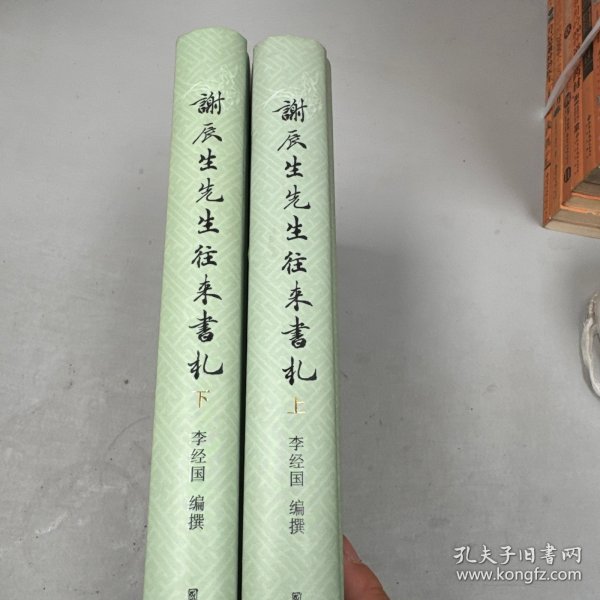 謝辰生先生往来書札
下
李经国 编撰
謝辰生先生往来書札
上
李经国 编撰
孔夫子旧書网
www.kongfz.com